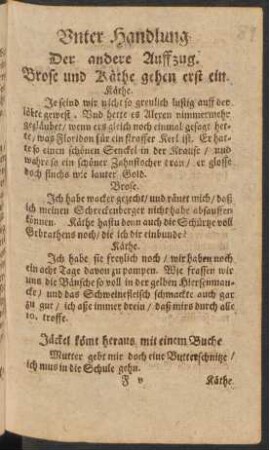 Unter Handlung
Der andere Auffzug.
Brose und Käthe gehen erst ein.
Käthe.
Je seind wir nicht so greulich lustig auff der
löbte gewest. Und hette es Alexen nimmermehr
gegläubet / wenn ers gleich noch einmal gesagt het-
te / was Floridon für ein frosser Kerl ist. Er hat-
te so einen schönen Senckel in der Krause / und
wahre so ein schöner Zahnstocher dran / er glosse
doch fluchs wie lauter Gold.
Brose.
Ich habe wacker gezecht / und ränet mich / daß
ich meinen Schreckenberger nicht habe absauffen
können. Käthe hastu denn auch die Schürtze voll
Gebrathens noch / die ich dir einbunde?
Käthe.
Ich habe sie freylich noch / wir haben noch
ein achte Tage davon zu pampen. Wie frassen wir
uns die Bänsche so voll in der gelben Hiersenmau-
cke / und das Schweinefleisch schmackte auch gar
zu gut / ich asse immer drein / daß mirs durch alle
10. troffe.
Jäckel kömt heraus mit einem Buche
Mutter gebt mir doch eine Butterschnitze /
ich mus in die Schule gehn.
F v Käthe.